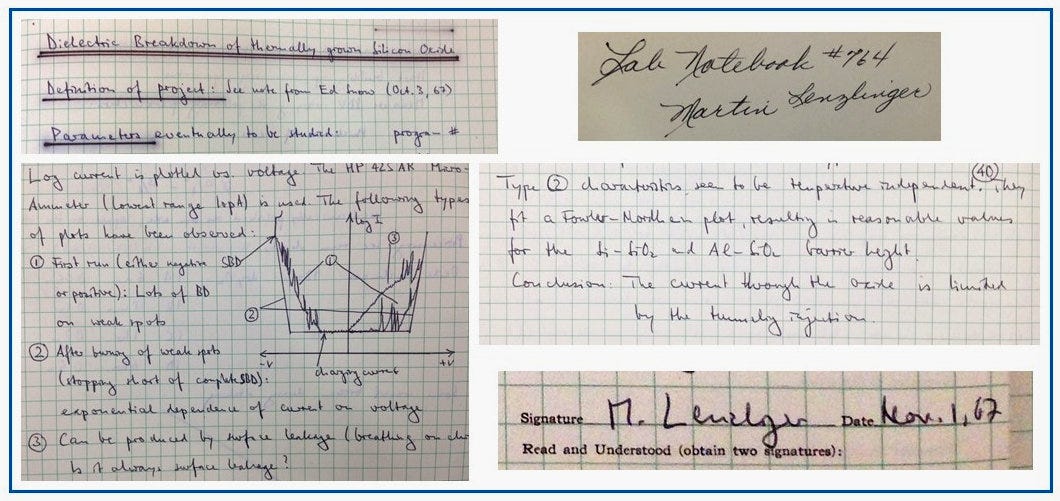 Dielectric Breakdown of thermally grown Silicon Oxide
Definition of project: See note from Ed Snow (Oct. 3, 67)
Parameters eventually to be studied: program #
Lab Notebook #764
Martin Lenzlinger
Log current is plotted vs. voltage. The HP 425 AR Micro-
Ammeter (lowest range 10pA) is used. The following types
of plots have been observed:
① First run (either negative
or positive): Lots of BD
on weak spots
② After burning of weak spots
(stopping short of complete SBD):
exponential dependence of current on voltage
③ Can be produced by surface leakage (breathing on
Is it always surface leakage?
SBD
log I
①
②
③
-V
+V
charging current
(40)
Type ② characteristics seem to be temperature independent. They
fit a Fowler-Nordheim plot, resulting in reasonable values
for the Si-SiO₂ and Al-SiO₂ barrier height.
Conclusion: The current through the oxide is limited
by the tunneling injection.
Signature M. Lenzlinger Date Nov. 1, 67
Read and Understood (obtain two signatures):